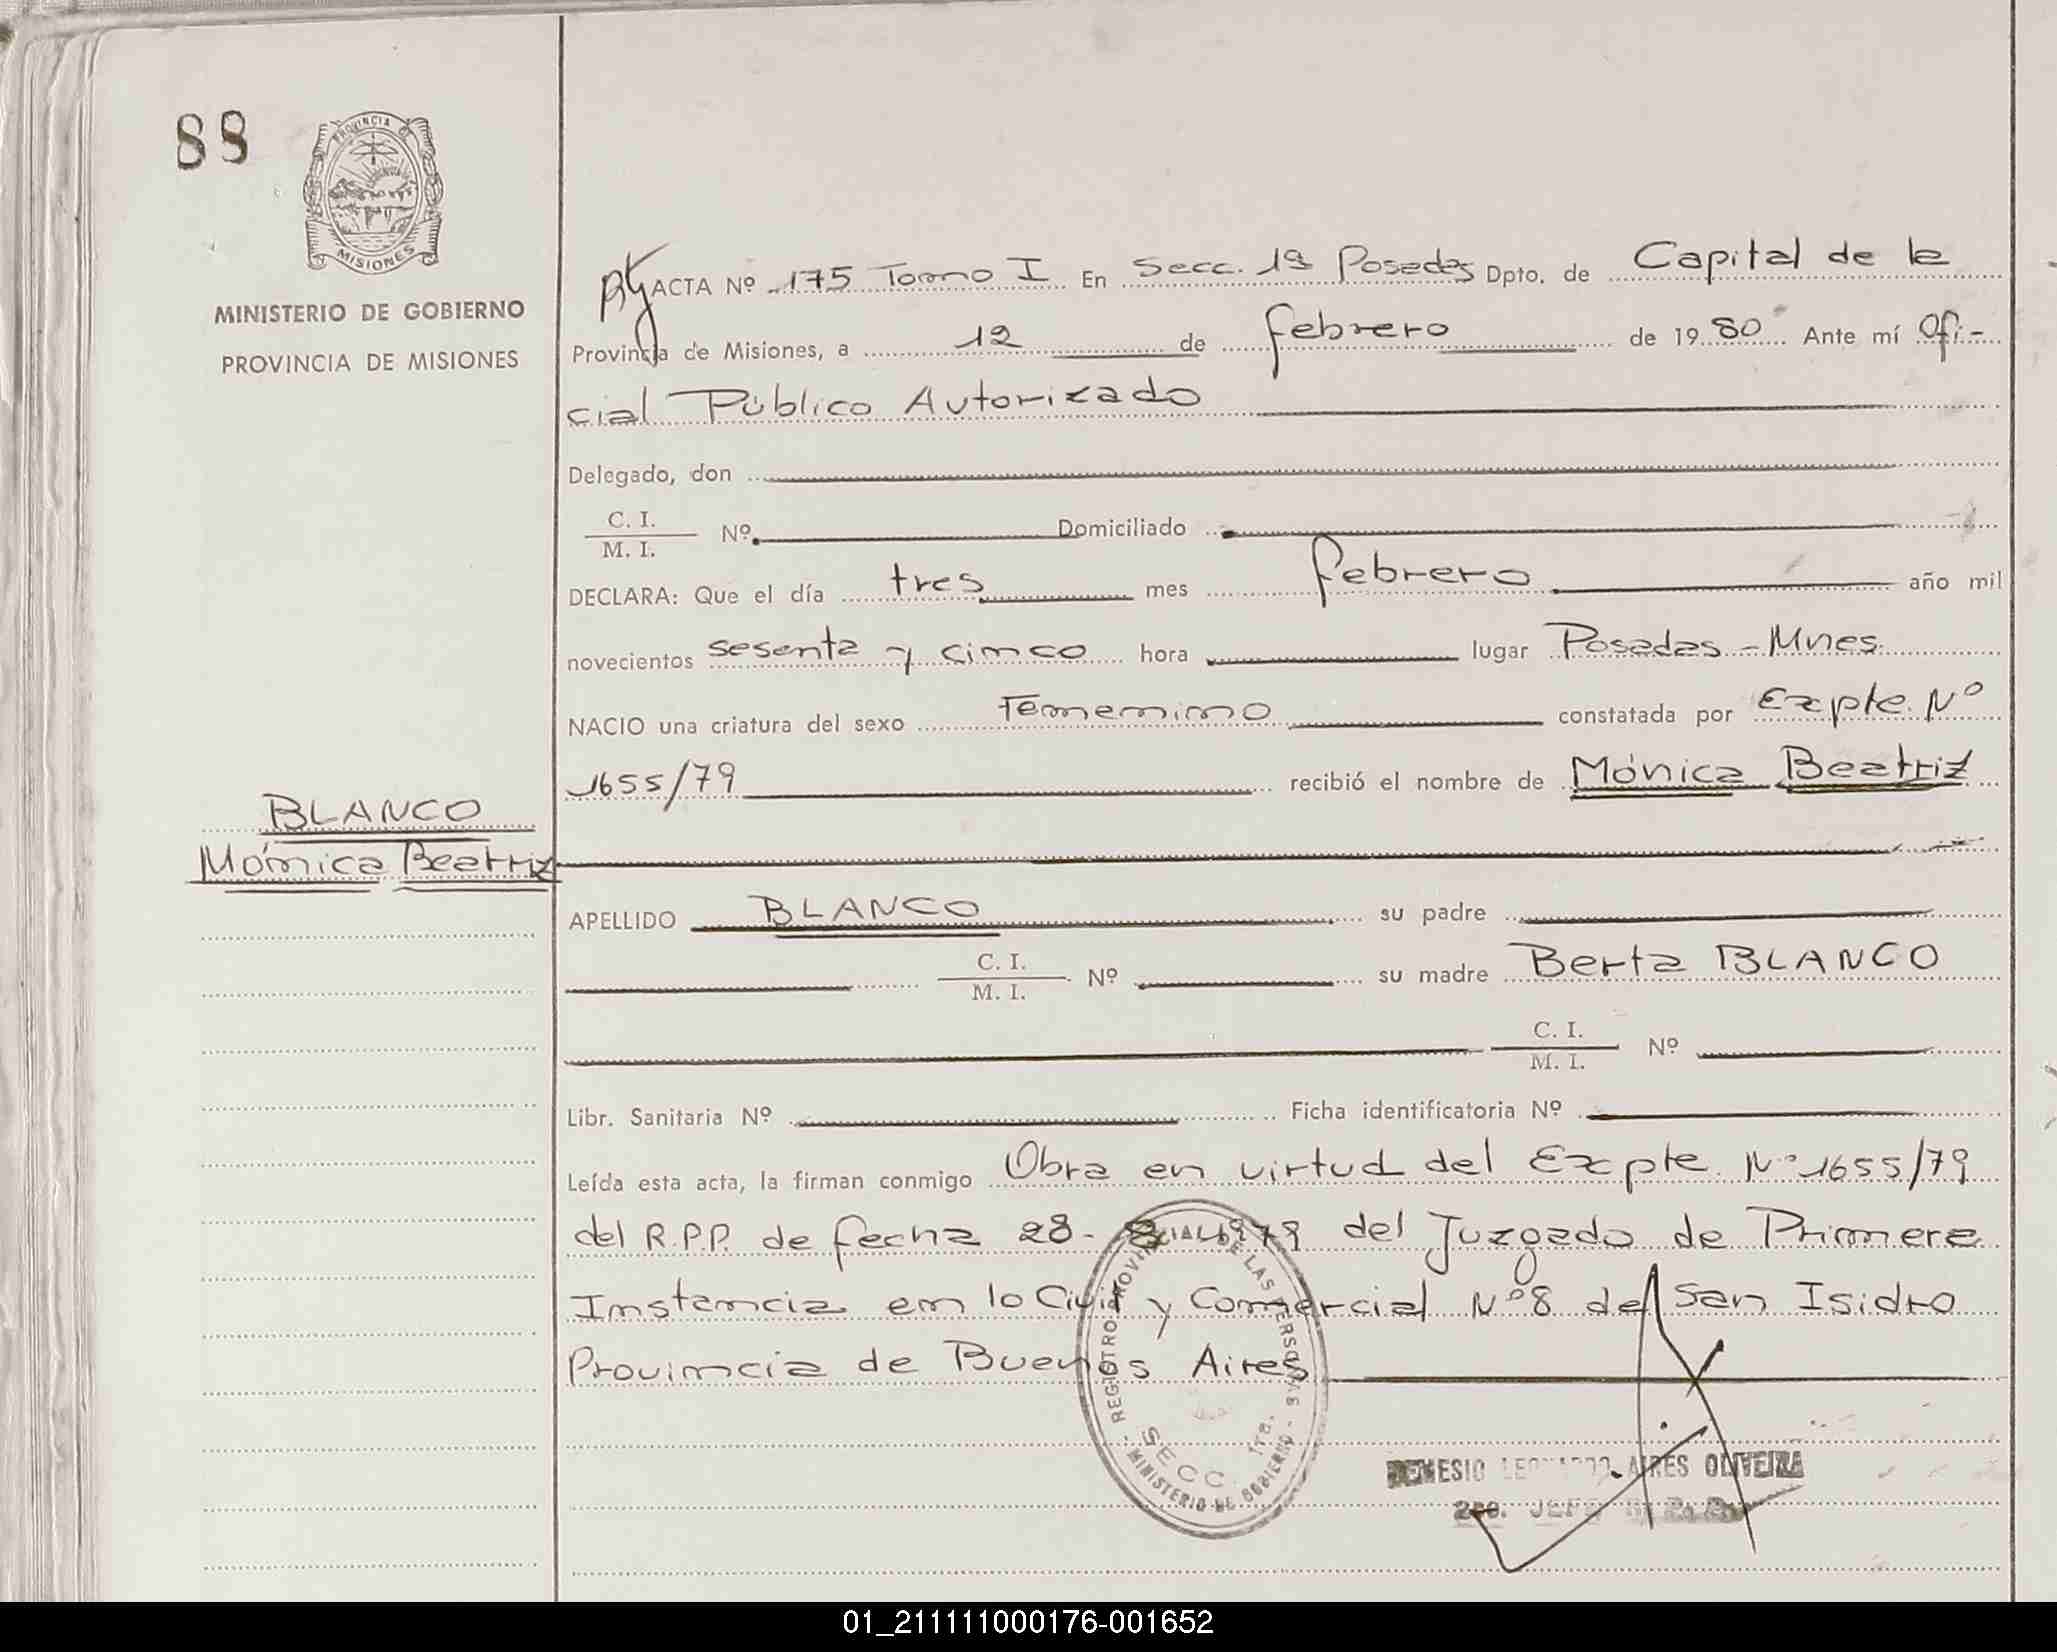 88
PROVINCIA DE
MISIONES
MINISTERIO DE GOBIERNO
PROVINCIA DE MISIONES
ACTA Nº 175 Tomo I En Secc. 1ª Posadas Dpto. de Capital de la
Provincia de Misiones, a 12 de febrero de 1980 Ante mí Ofi-
cial Público Autorizado
Delegado, don
C. I.
M. I. Nº Domiciliado
DECLARA: Que el día tres mes febrero año mil
novecientos sesenta y cinco hora lugar Posadas - Mnes.
NACIO una criatura del sexo Femenino constatada por Expte. Nº
1655/79 recibió el nombre de Mónica Beatriz
BLANCO
Mónica Beatriz
APELLIDO BLANCO su padre
C. I.
M. I. Nº su madre Berta BLANCO
C. I.
M. I. Nº
Libr. Sanitaria Nº Ficha identificatoria Nº
Leída esta acta, la firman conmigo Obra en virtud del Expte. Nº 1655/79
del R.P.P. de fecha 28-8-1979 del Juzgado de Primera
Instancia en lo Civil y Comercial Nº 8 de San Isidro
Provincia de Buenos Aires
REGISTRO PROVINCIAL DE LAS PERSONAS - MINISTERIO DE GOBIERNO -
SECC. 1ra.
AIRES OLIVEIRA
2do. JEFE
01_211111000176-001652